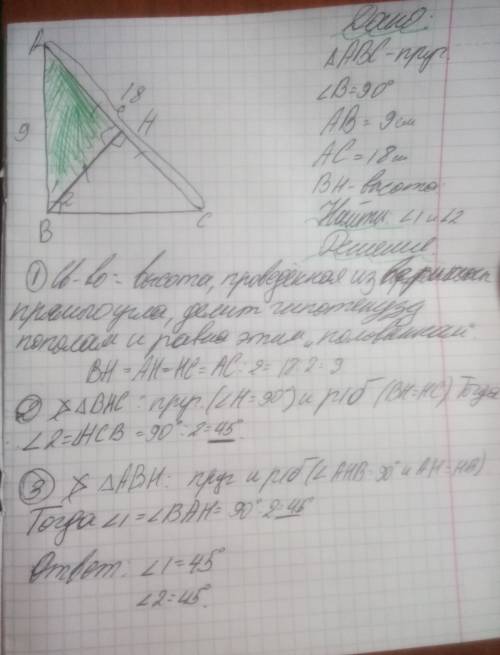 Дано:
A
△ABC - пруг.
∠B=90°
18
AB = 9 см
9
H
AC = 18 см
BH - высота
1
2
B
C
Найти: ∠1 и ∠2
Решение
① Св-во - высота, проведённая из вершины
прямого угла, делит гипотенузу
пополам и равна этим "половинкам"
BH = AH = HC = AC : 2 = 18 : 2 = 9
② △BHC: пруг. (∠H = 90°) и р/б (BH=HC) Тогда
∠2 = HCB = 90° : 2 = 45°.
③ △ABH: пруг и р/б (∠AHB=90° и AH=HB)
Тогда ∠1 = ∠BAH = 90° : 2 = 45°
Ответ: ∠1 = 45°
∠2 = 45°.